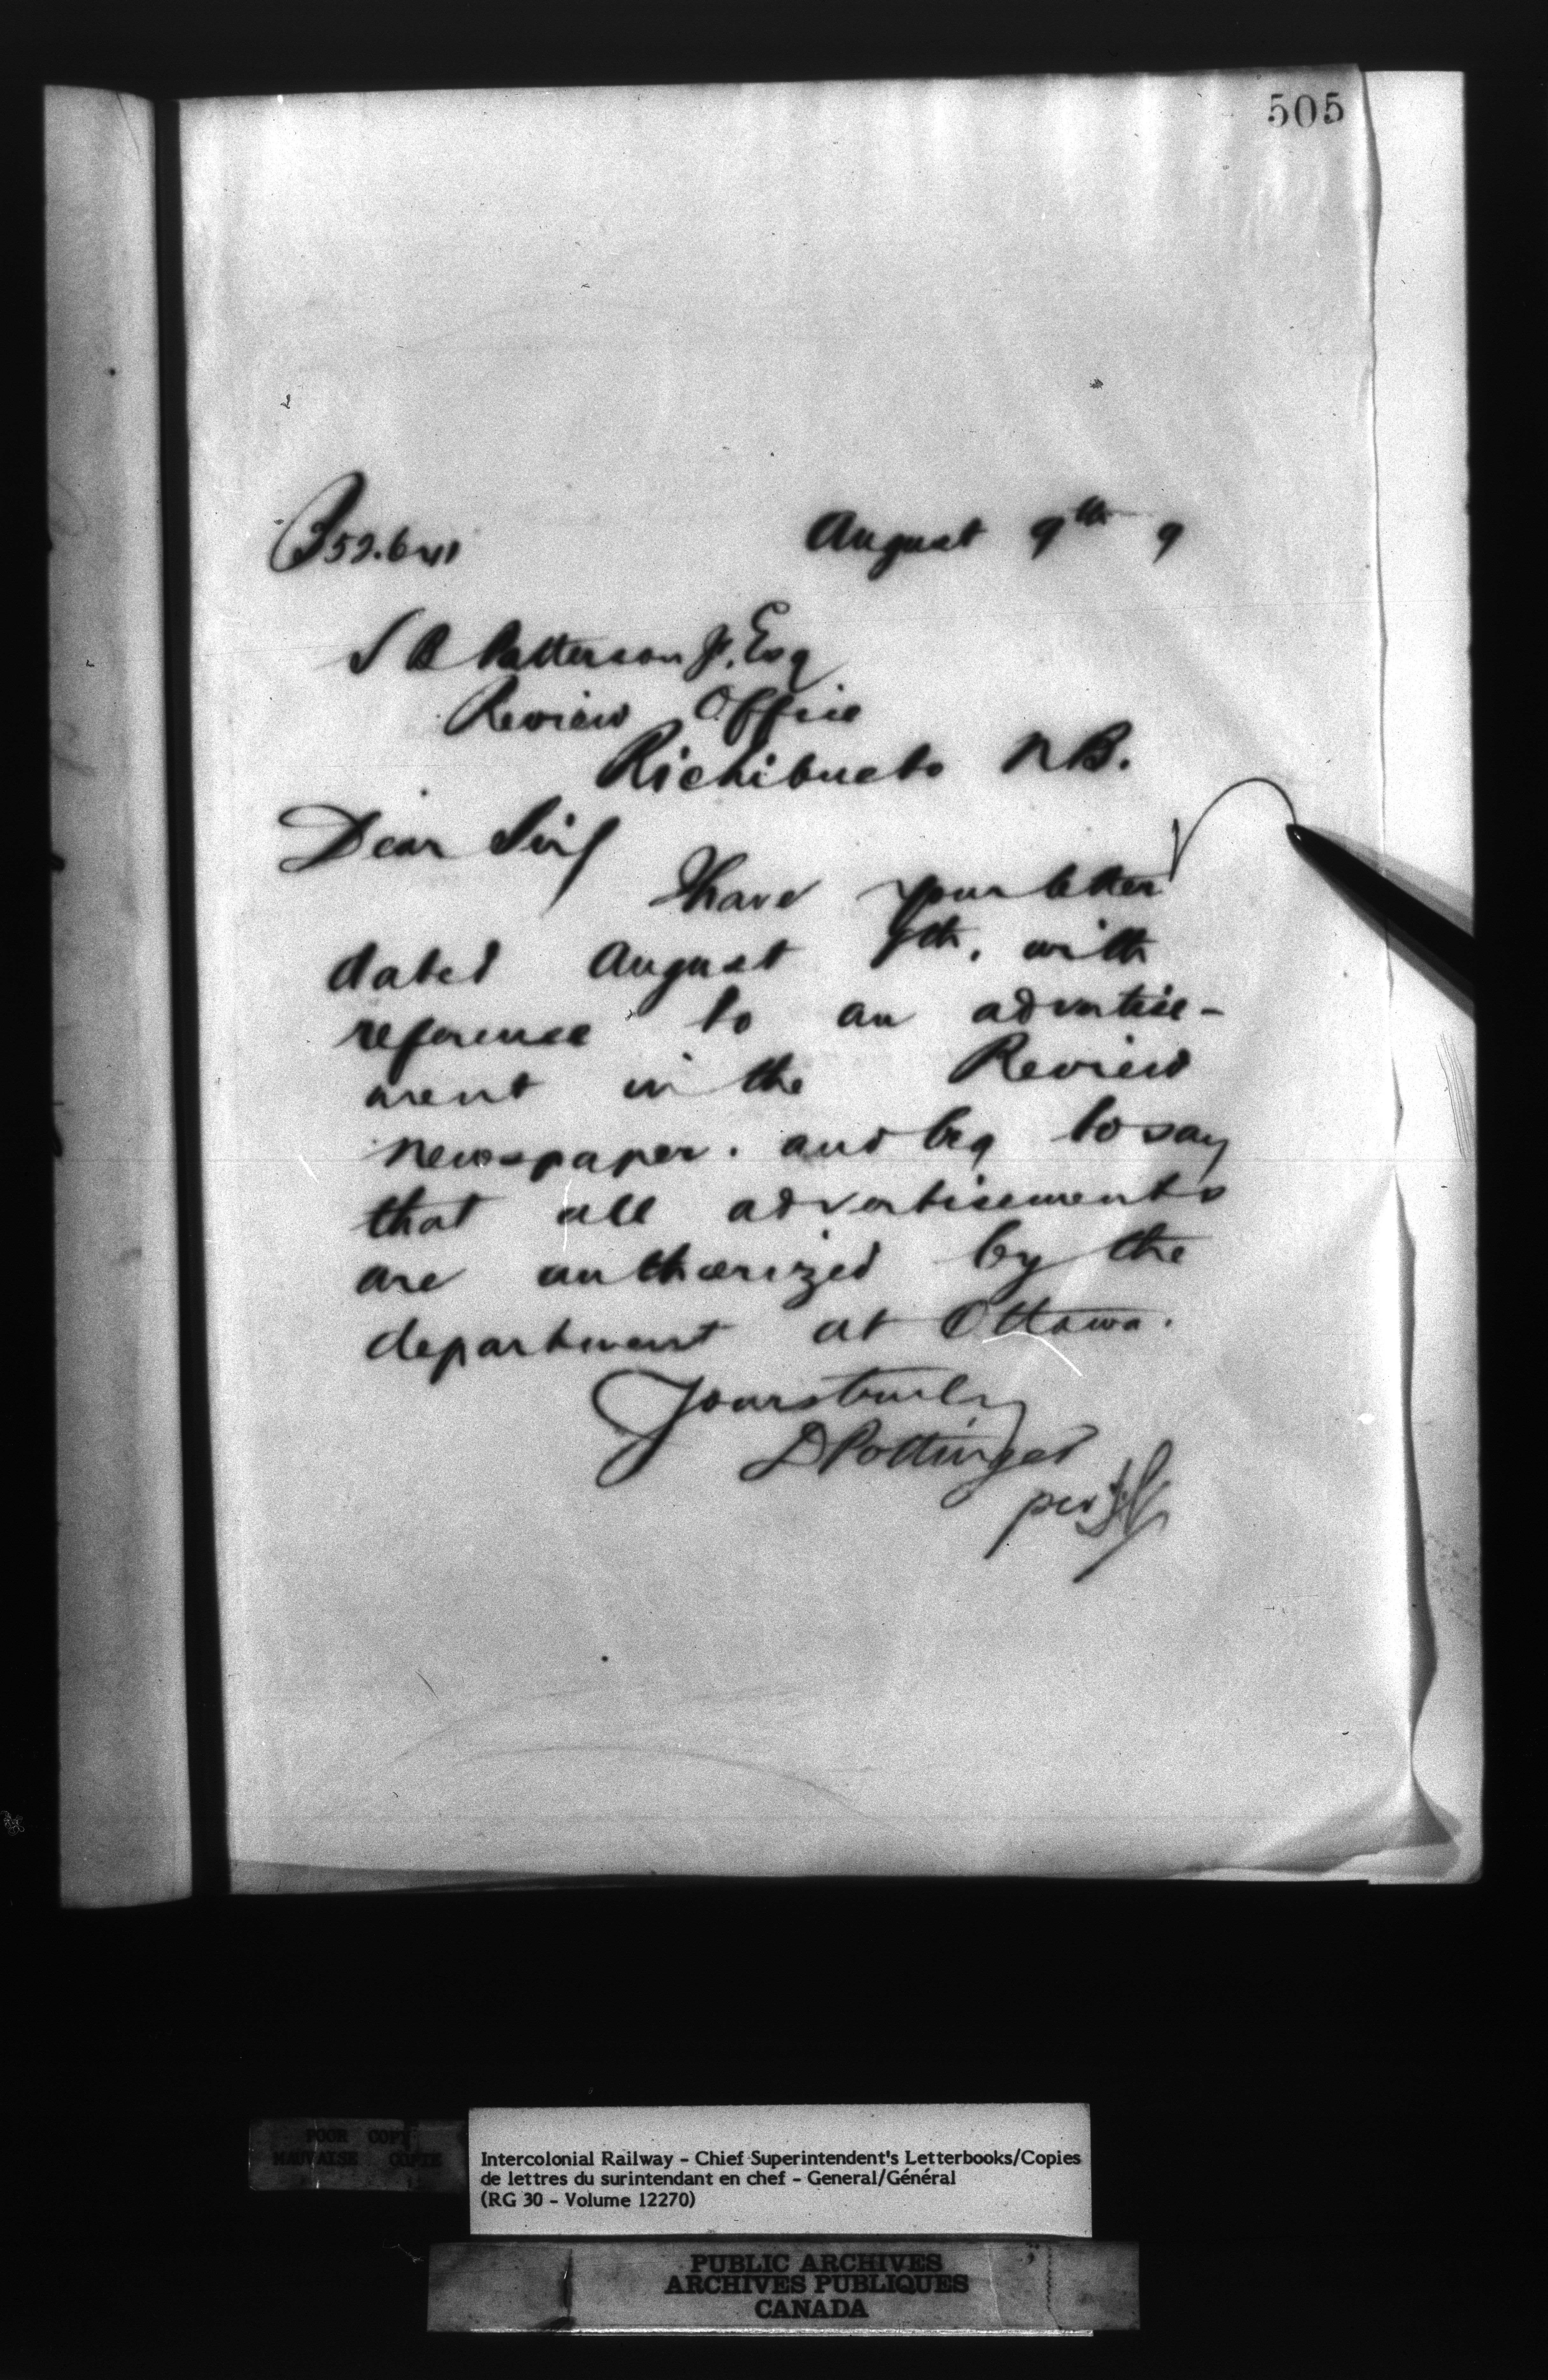 505
August 9th 9
S B Patterson Jr. Esq
Review Office
Richibucto N B.
Dear Sir
I have your letter
dated August 7th, with
reference to an advertise-
ment in the Review
newspaper. and beg to say
that all advertisements
are authorized by the
department at Ottawa.
Yours truly
D Pottinger
per
POOR COPY
MAUVAISE COPIE
Intercolonial Railway - Chief Superintendent's Letterbooks/Copies
de lettres du surintendant en chef - General/Général
(RG 30 - Volume 12270)
PUBLIC ARCHIVES
ARCHIVES PUBLIQUES
CANADA